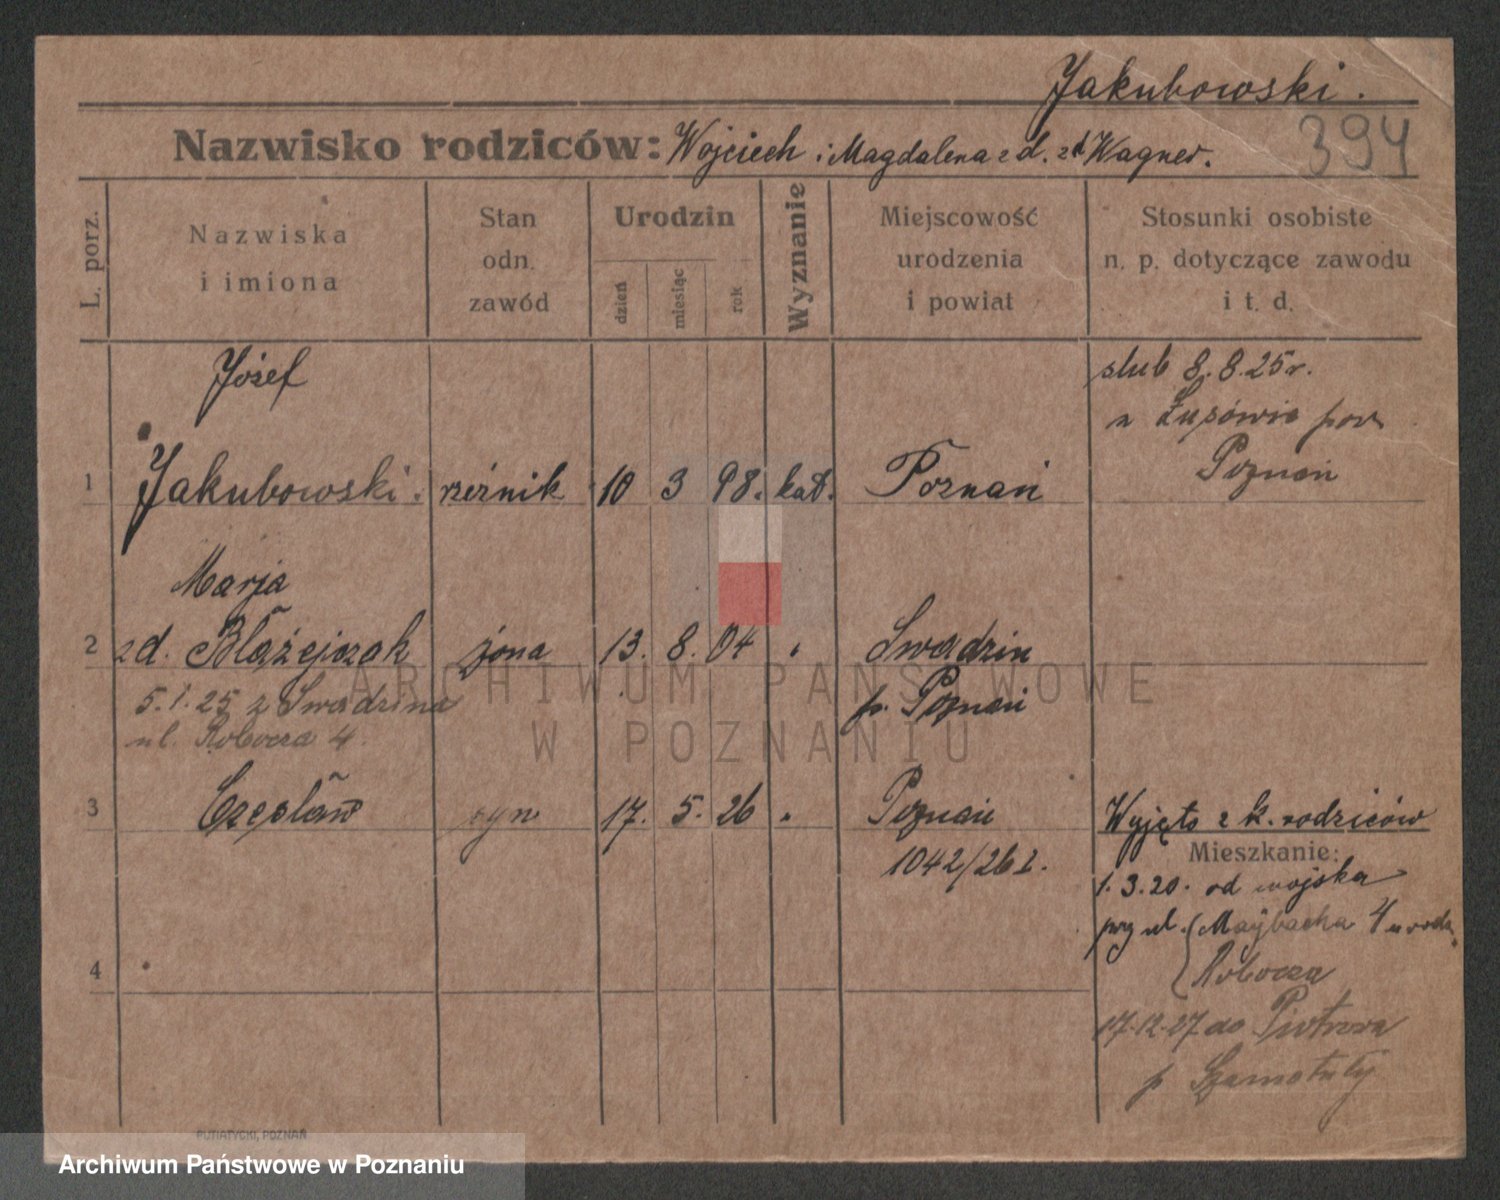 Jakubowski.
394
Nazwisko rodziców: Wojciech i Magdalena z d. Wagner.
L. porz.
Nazwiska
i imiona
Stan
odn.
zawód
Urodzin
dzień
miesiąc
rok
Wyznanie
Miejscowość
urodzenia
i powiat
Stosunki osobiste
n. p. dotyczące zawodu
i t. d.
Józef
ślub 8.8.25 r.
w Lusówie pow.
Poznań
1 Jakubowski. rzeźnik 10 3 98. kat. Poznań
Marja
2 zd. Błażejczak żona 13. 8. 04 " Swadzin
p. Poznań
5.1.25 z Swadzina
ul. Robocza 4.
3 Czesław syn 17. 5. 26 " Poznań
1042/26 I.
Wyjęto z k. rodziców
Mieszkanie:
1.3.20. od wojska
przy ul. Maybacha 4 u rodz.
Robocza
4
17.12.27 do Piotrowa
p. Szamotuły
ARCHIWUM PAŃSTWOWE
W POZNANIU
PUTIATYCKI, POZNAŃ
Archiwum Państwowe w Poznaniu